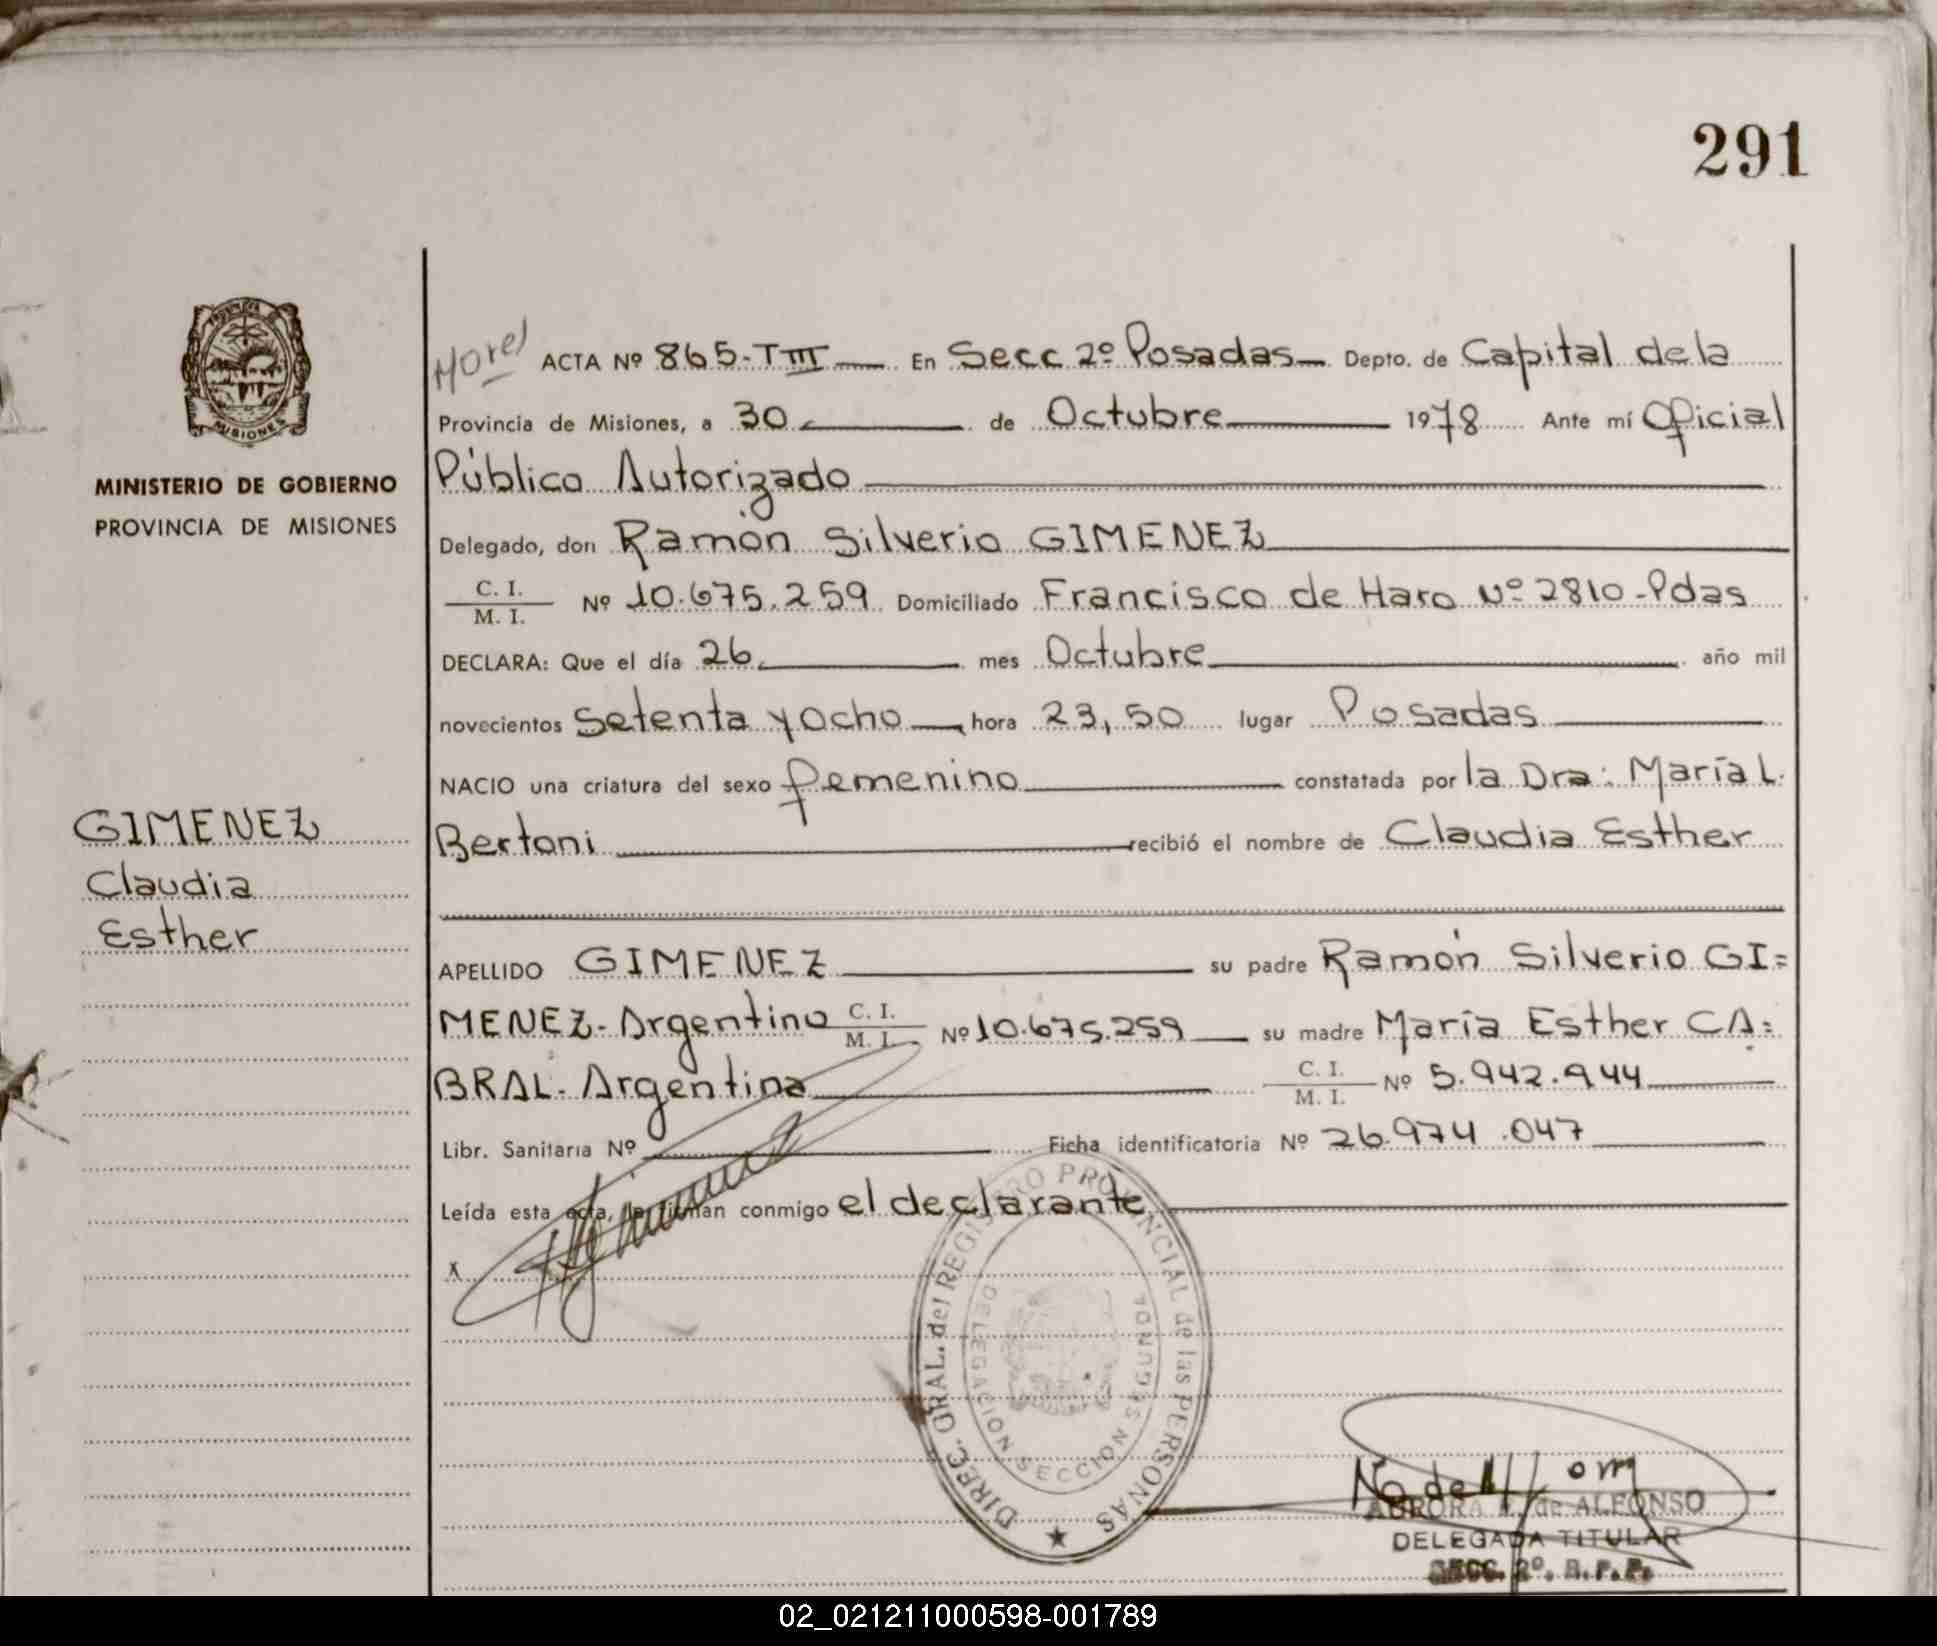 291
PROVINCIA DE
MISIONES
MINISTERIO DE GOBIERNO
PROVINCIA DE MISIONES
GIMENEZ
Claudia
Esther
ACTA Nº 865-TIII En Secc 2º Posadas Depto. de Capital de la
Provincia de Misiones, a 30 de Octubre 1978 Ante mí Oficial
Público Autorizado
Delegado, don Ramón Silverio GIMENEZ
C. I.
M. I. Nº 10.675.259 Domiciliado Francisco de Haro Nº 2810-Pdas
DECLARA: Que el día 26 mes Octubre año mil
novecientos setenta y ocho hora 23,50 lugar Posadas
NACIO una criatura del sexo femenino constatada por la Dra: María L.
Bertoni recibió el nombre de Claudia Esther
APELLIDO GIMENEZ su padre Ramón Silverio GI=
MENEZ- Argentino C. I. M. I. Nº 10.675.259 su madre María Esther CA=
BRAL- Argentina C. I. M. I. Nº 5.942.944
Libr. Sanitaria Nº Ficha identificatoria Nº 26.974.047
Leída esta acta, la firman conmigo el declarante
x
DIREC. GRAL. del REGISTRO PROVINCIAL de las PERSONAS
DELEGACION SECCION SEGUNDA
AURORA de ALFONSO
DELEGADA TITULAR
SECC. 2º. R.P.P.
02_021211000598-001789